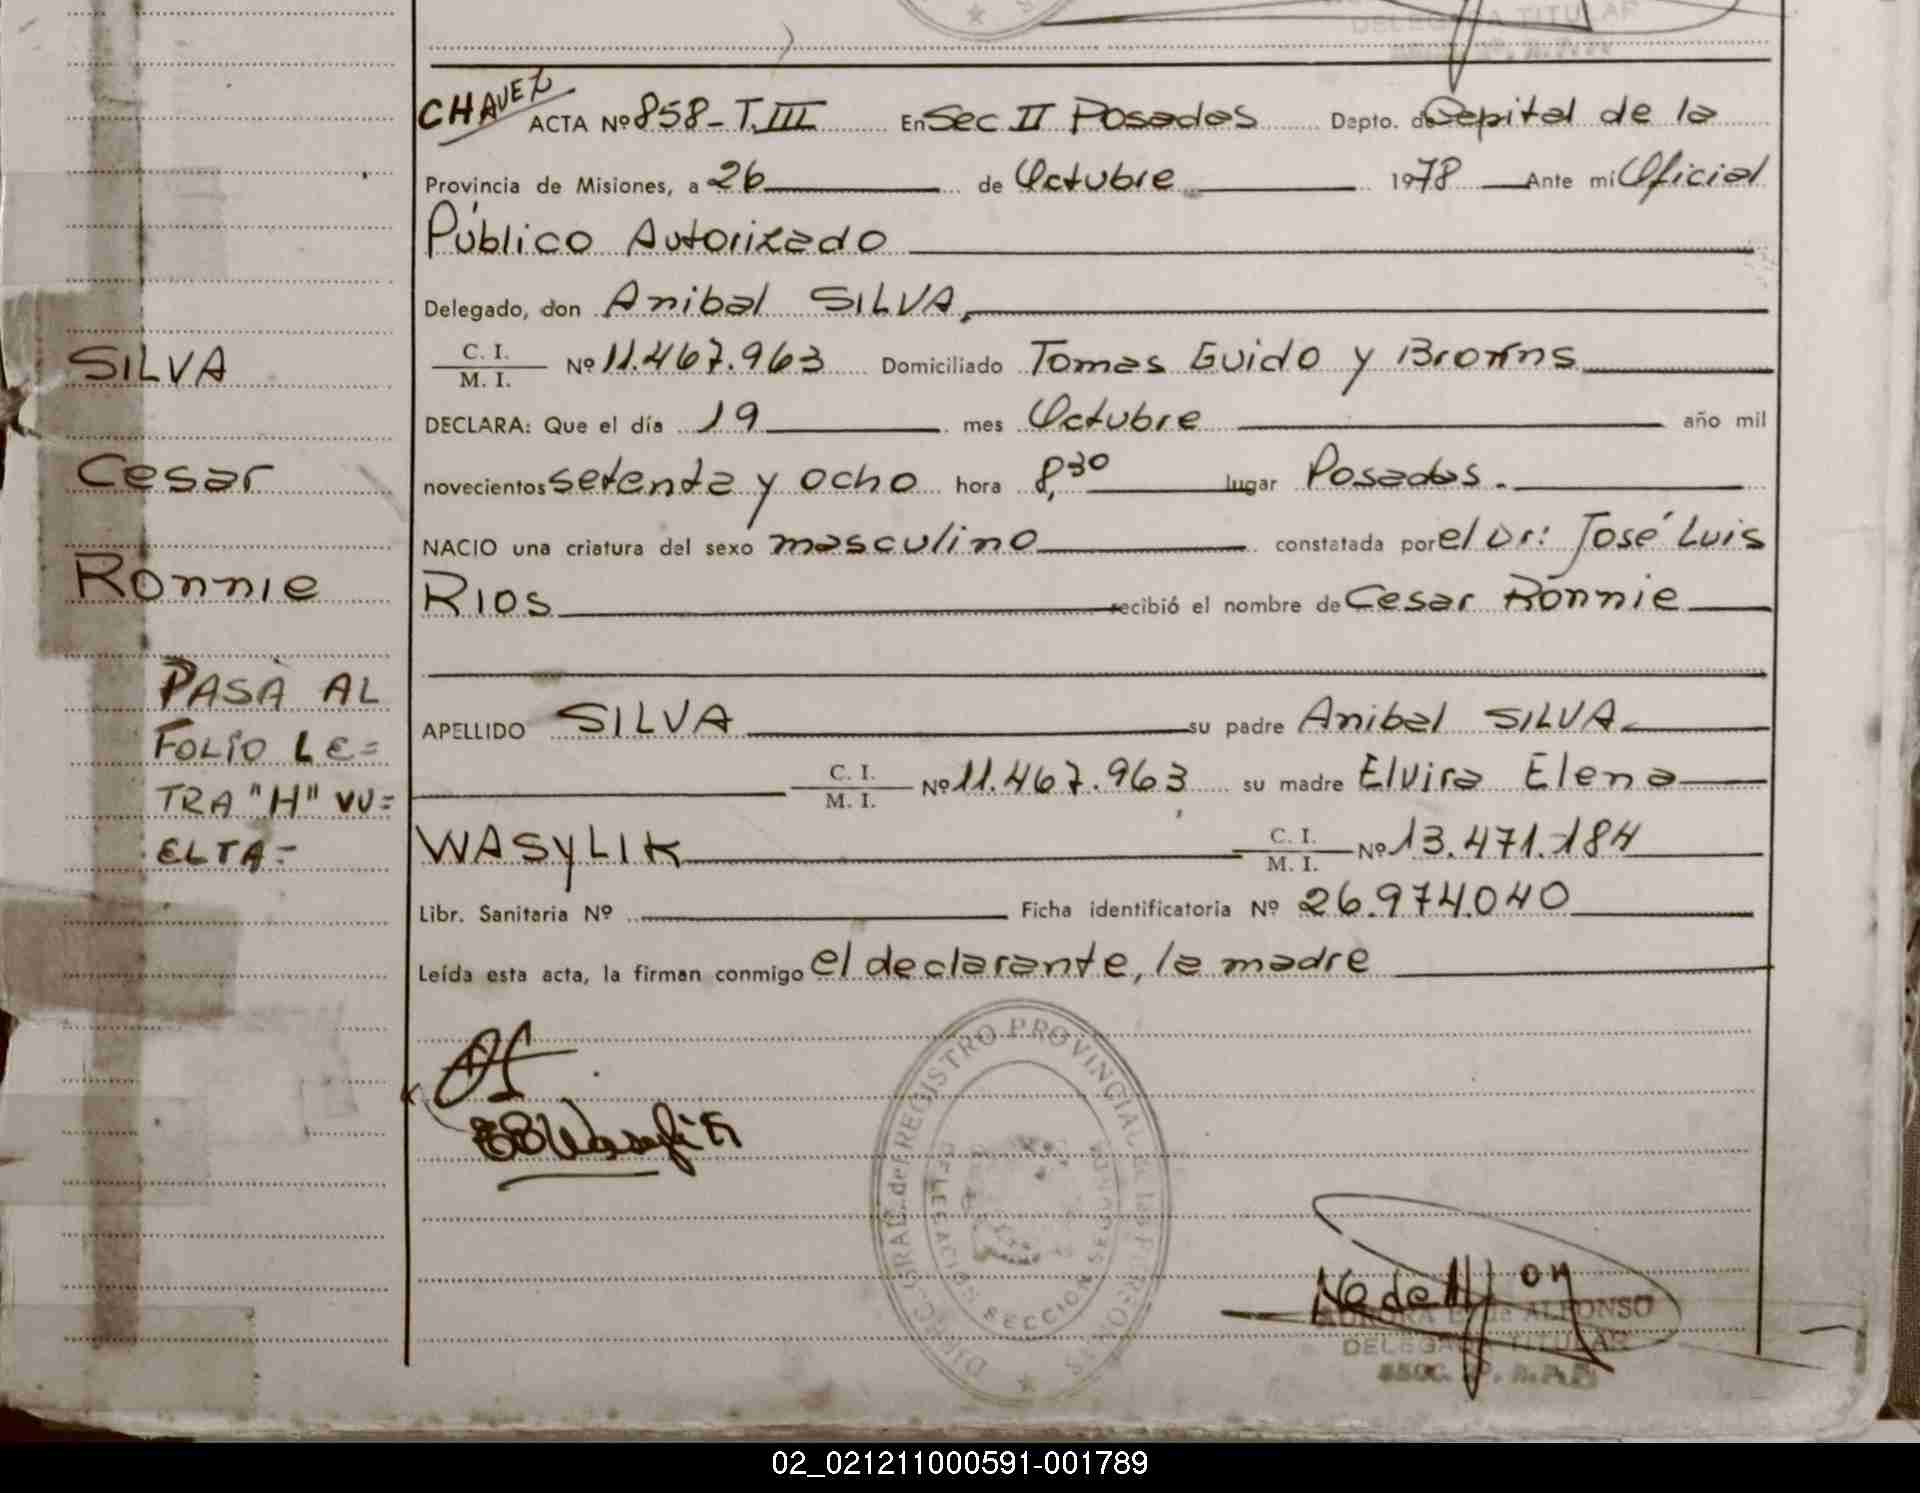 DELEGADA TITULAR
CHAVEZ
ACTA Nº 858-T.III En Sec II Posadas Dapto. de Capital de la
Provincia de Misiones, a 26 de Octubre 1978 Ante mi Oficial
Público Autorizado
Delegado, don Anibal SILVA,
C. I.
M. I.
Nº 11.467.963 Domiciliado Tomas Guido y Browns
DECLARA: Que el día 19 mes Octubre año mil
novecientos setenta y ocho hora 8,30 lugar Posadas.
NACIO una criatura del sexo masculino constatada por el Dr: José Luis
Rios recibió el nombre de Cesar Ronnie
APELLIDO SILVA su padre Anibal SILVA
C. I.
M. I.
Nº 11.467.963 su madre Elvira Elena
WASYLIK
C. I.
M. I.
Nº 13.471.184
Libr. Sanitaria Nº Ficha identificatoria Nº 26.974.040
Leída esta acta, la firman conmigo el declarante, la madre
SILVA
Cesar
Ronnie
PASA AL
FOLIO LE=
TRA "H" VU=
ELTA=
DIREC. GRAL. del REGISTRO PROVINCIAL de las PERSONAS
DELEGACION SECCION SEGUNDA
AURORA de ALFONSO
DELEGADA TITULAR
02_021211000591-001789